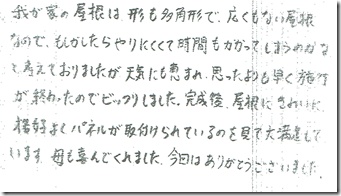 我が家の屋根は、形も多角形で、広くもない屋根
なので、もしかしたらやりにくくて時間もかかってしまうのかな
と、考えておりましたが天気にも恵まれ、思ったよりも早く施行
が終わったのでビックリしました。完成後、屋根にきれいに、
格好よくパネルが取付けられているのを見て大満足して
います。母も喜んでくれました。今回はありがとうございました。